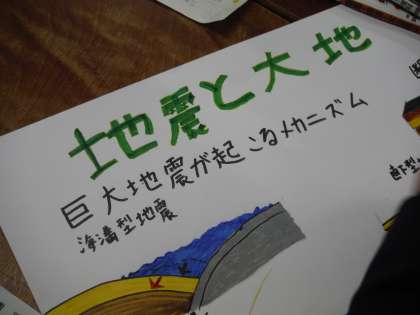 地震と大地
巨大地震が起こるメカニズム
海溝型地震
直下型